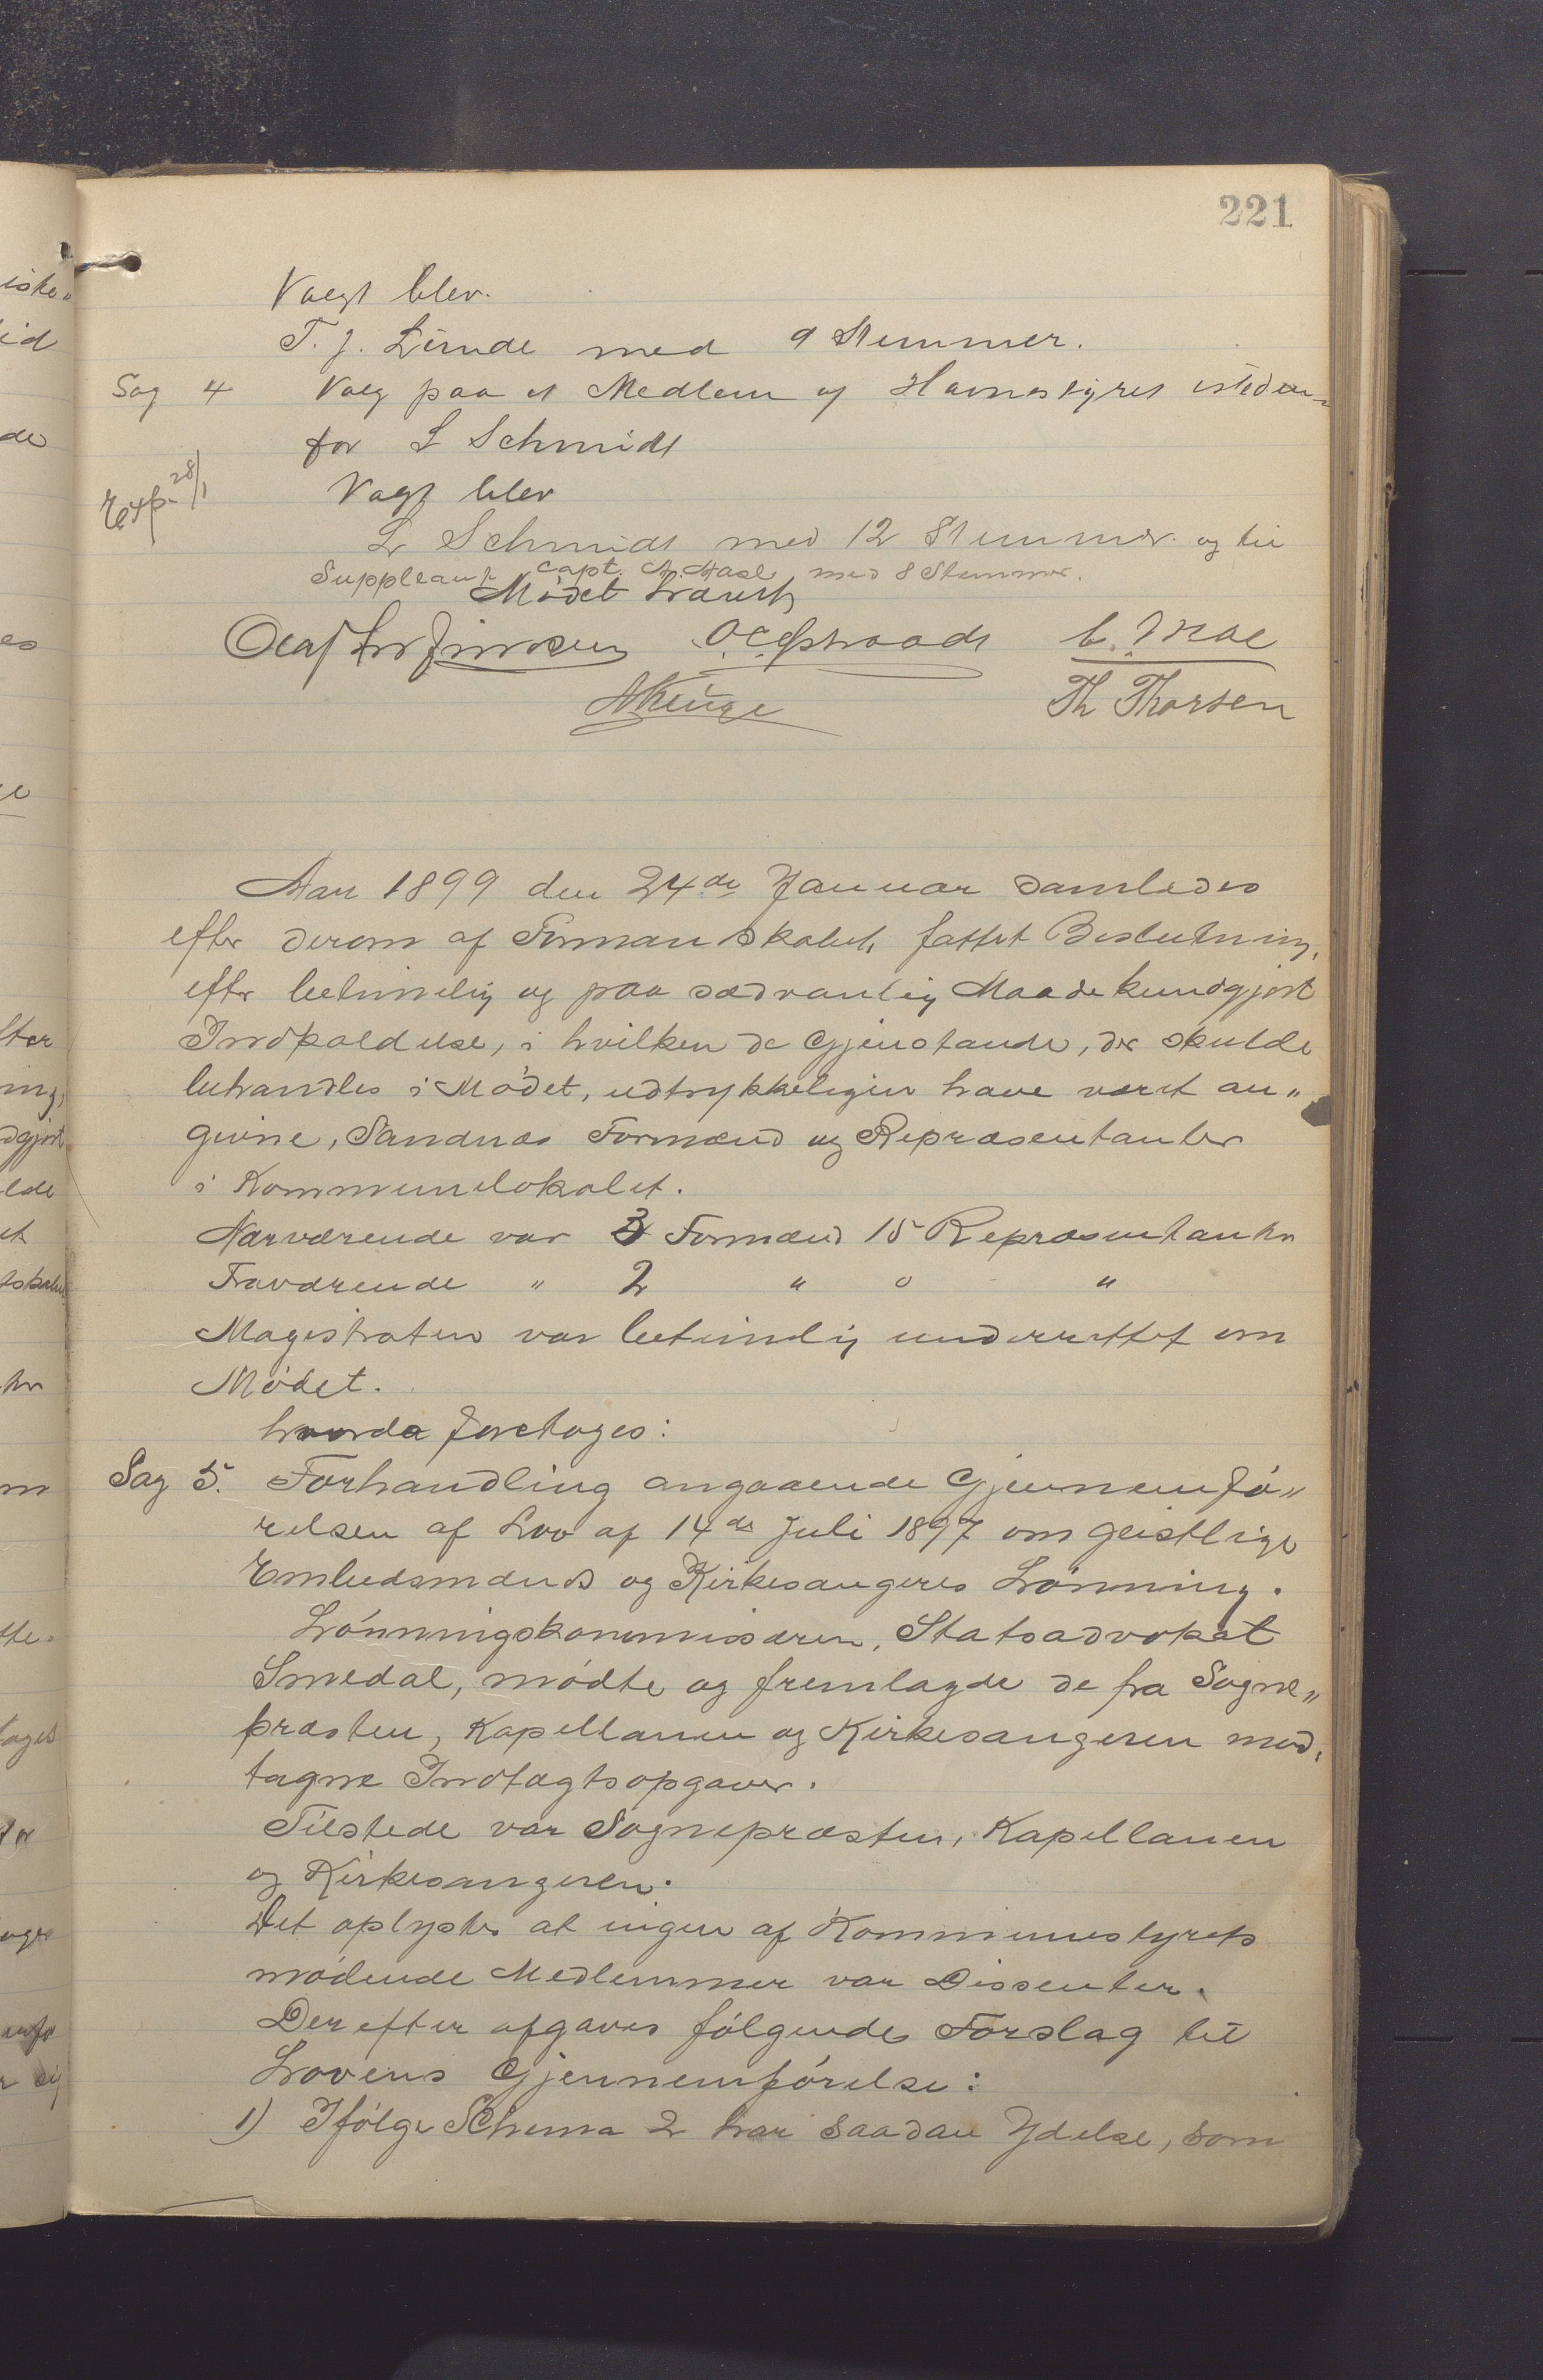 221
Valgt blev.
T. J. Lunde med 9 Stemmer.
Sag 4 Valg paa et Medlem af Havnestyret isteden-
for L Schmidt
Expe 28/1
Valgt blev
L Schmidt med 12 Stemmer og til
Suppleant Capt. A. Aase med 8 Stemmer.
Mødet hævet
Th Thorsen
Aar 1899 den 24de Januar samledes
efter derom af Formandskabet fattet Beslutning,
efter betimelig og paa sædvanlig Maade kundgjort
Indkaldelse, i hvilken de Gjenstande, der skulde
behandles i Mødet, udtrykkeligen have været an„
givne, Sandnæs Formænd og Repræsentanter
i Kommunelokalet.
Nærværende var 3 Formænd 15 Repræsentanter
Fraværende " 2 " 0 "
Magistraten var betimelig underrettet om
Mødet.
hvorda foretoges:
Sag 5. Forhandling angaaende Gjennemfø„
relsen af Lov af 14de Juli 1897 om geistlige
Embedsmænds og Kirkesangeres Lønning.
Lønningskommissæren, Statsadvokat
Smedal, mødte og fremlagde de fra Sogne„
præsten, Kapellanen og Kirkesangeren mod„
tagne Indtægtsopgaver.
Tilstede var Sognepræsten, Kapellanen
og Kirkesangeren.
Det oplystes at ingen af Kommunestyrets
mødende Medlemmer var Dissenter.
Derefter afgaves følgende Forslag til
Lovens Gjennemførelse:
1) Ifølge Schema 2 har saadan Ydelse, som